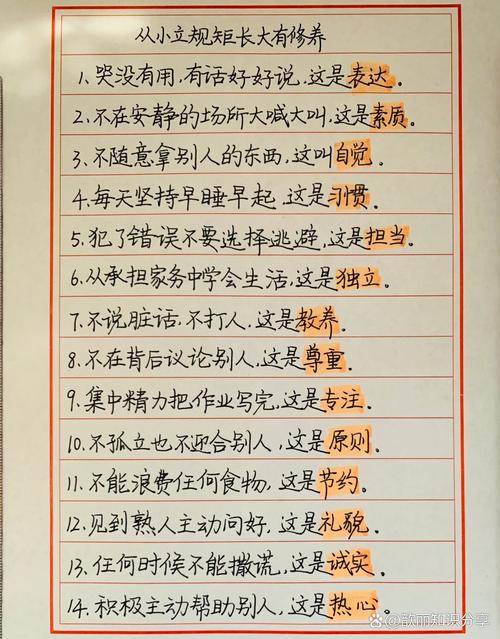 从小立规矩长大有修养
1、哭没有用,有话好好说,这是表达。
2、不在安静的场所大喊大叫,这是素质。
3、不随意拿别人的东西,这叫自觉。
4、每天坚持早睡早起,这是习惯。
5、犯了错误不要选择逃避,这是担当。
6、从承担家务中学会生活,这是独立。
7、不说脏话,不打人,这是教养。
8、不在背后议论别人,这是尊重。
9、集中精力把作业写完,这是专注。
10、不孤立也不迎合别人,这是原则。
11、不能浪费任何食物,这是节约。
12、见到熟人主动问好,这是礼貌。
13、任何时候不能撒谎,这是诚实。
14、积极主动帮助别人,这是热心。
@歆丽知识分享